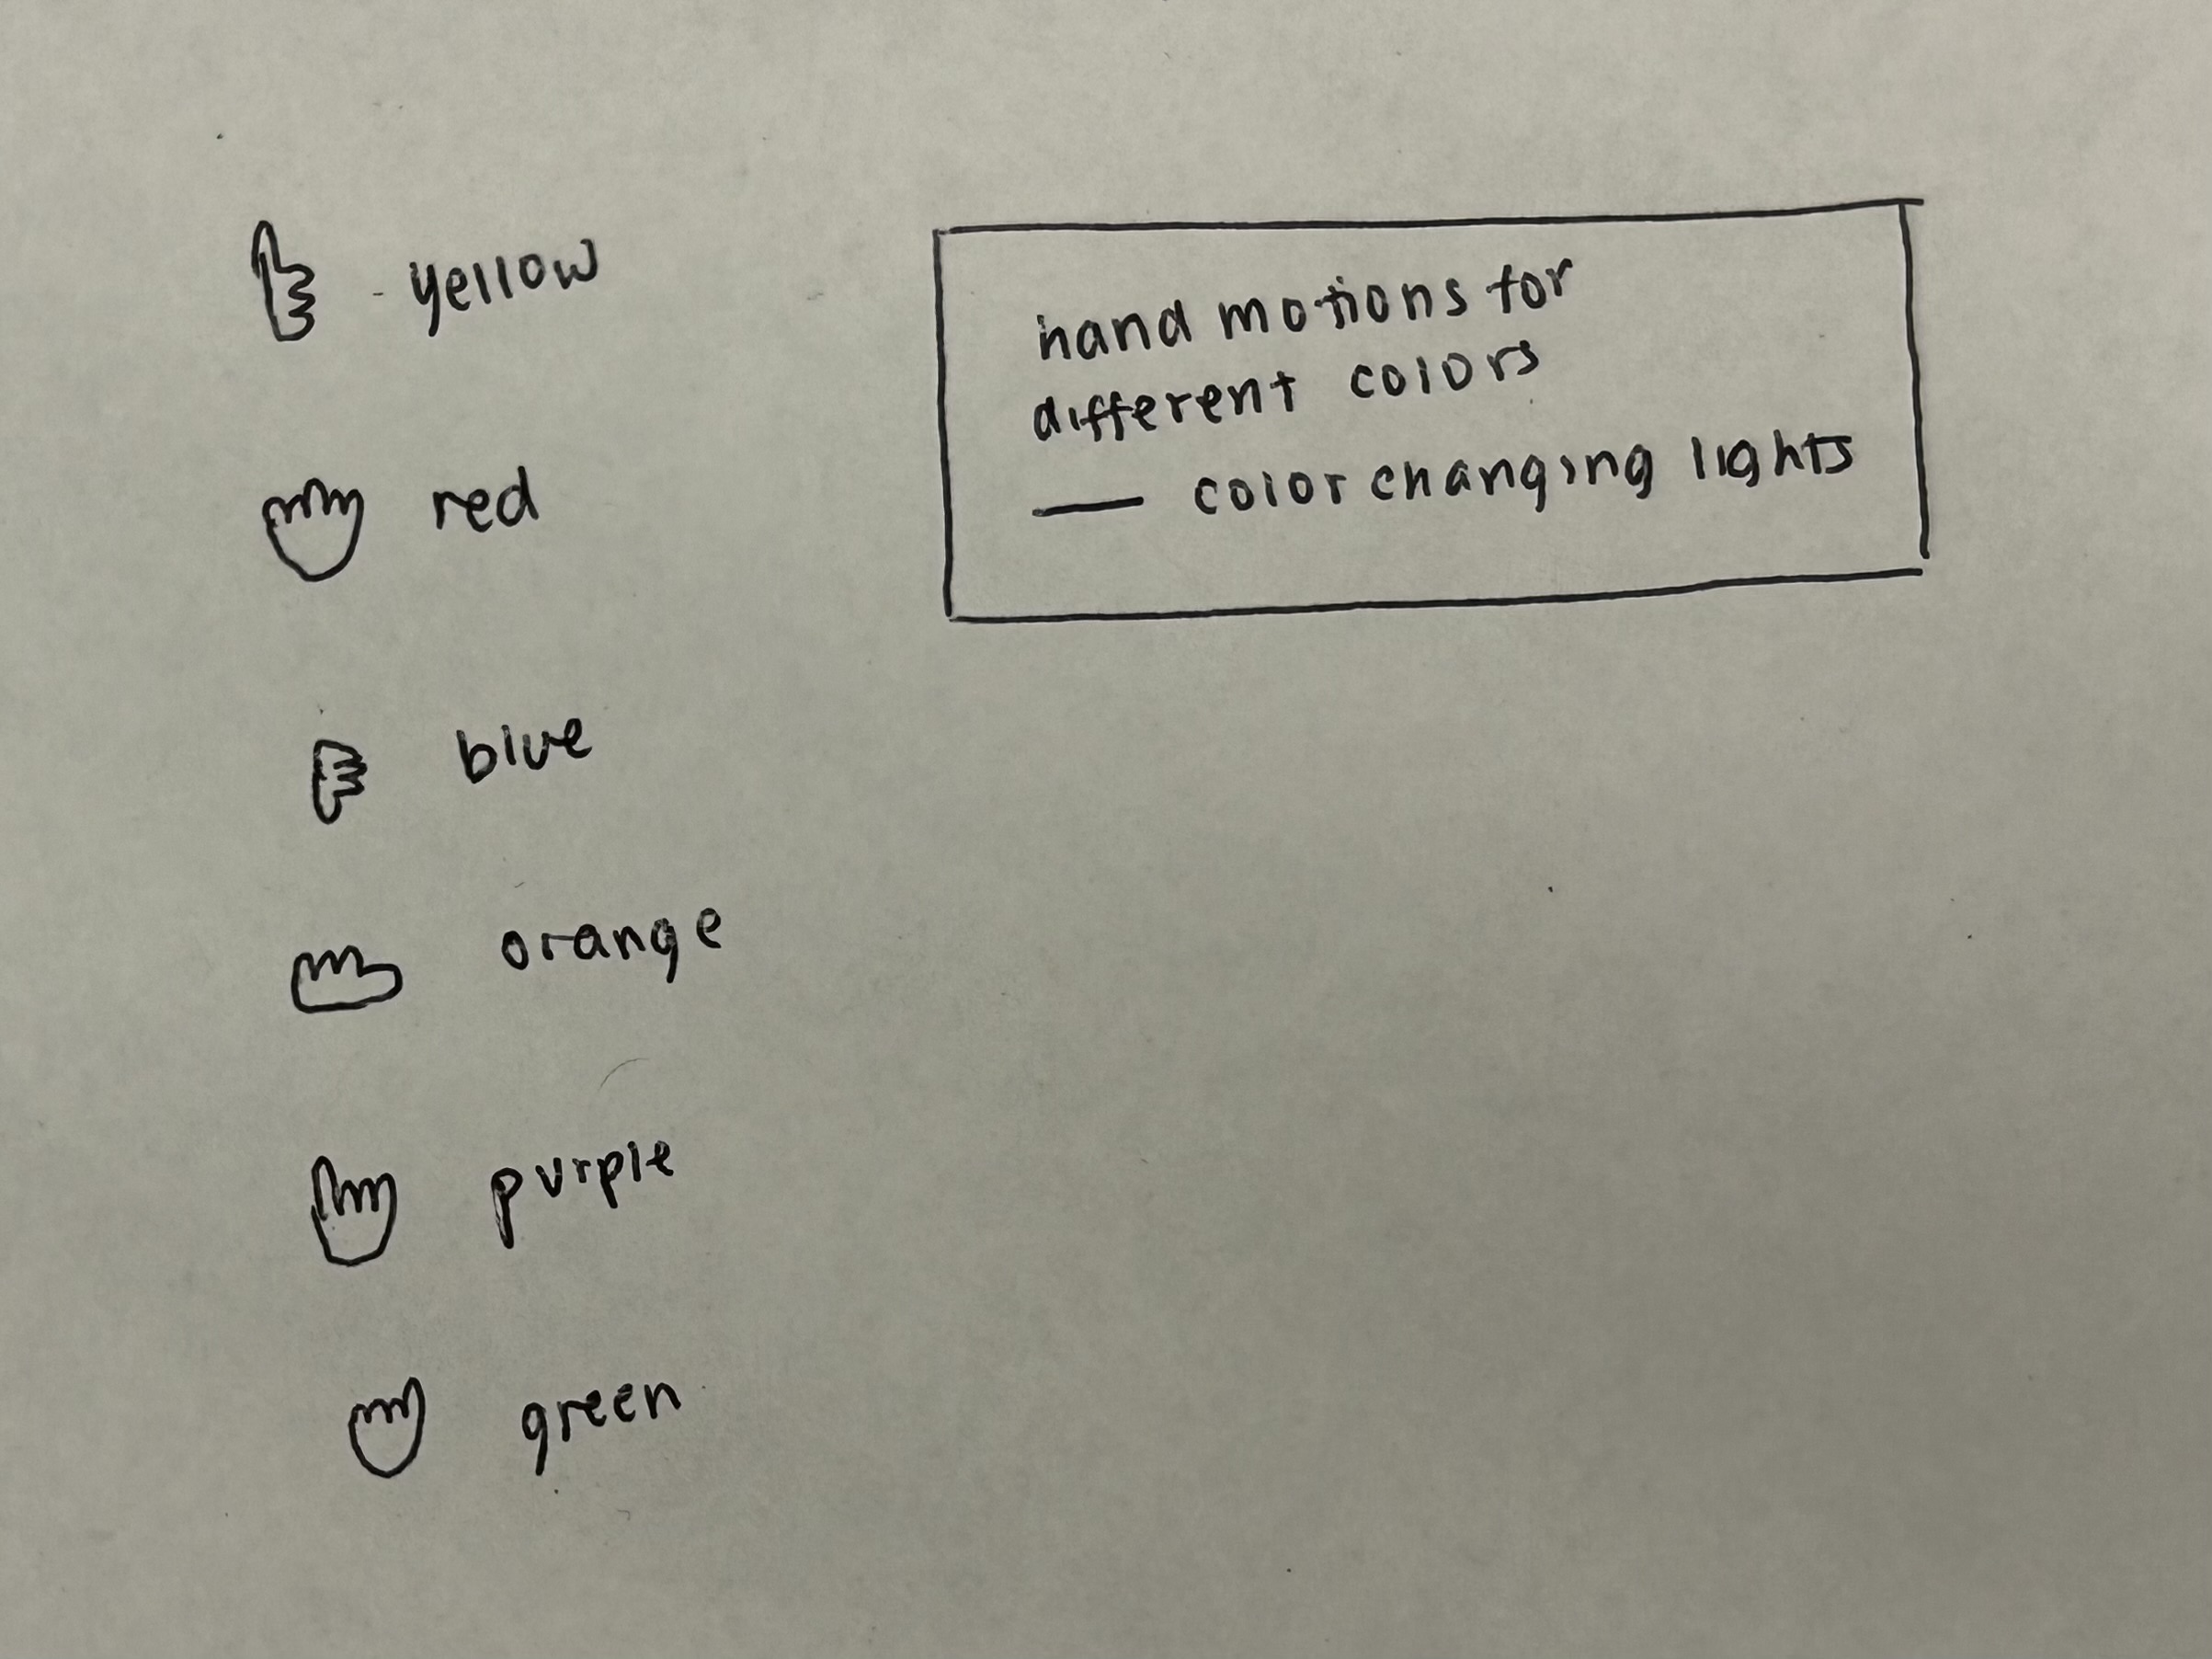 - yellow
red
blue
orange
purple
green
hand motions for
different colors
— color changing lights